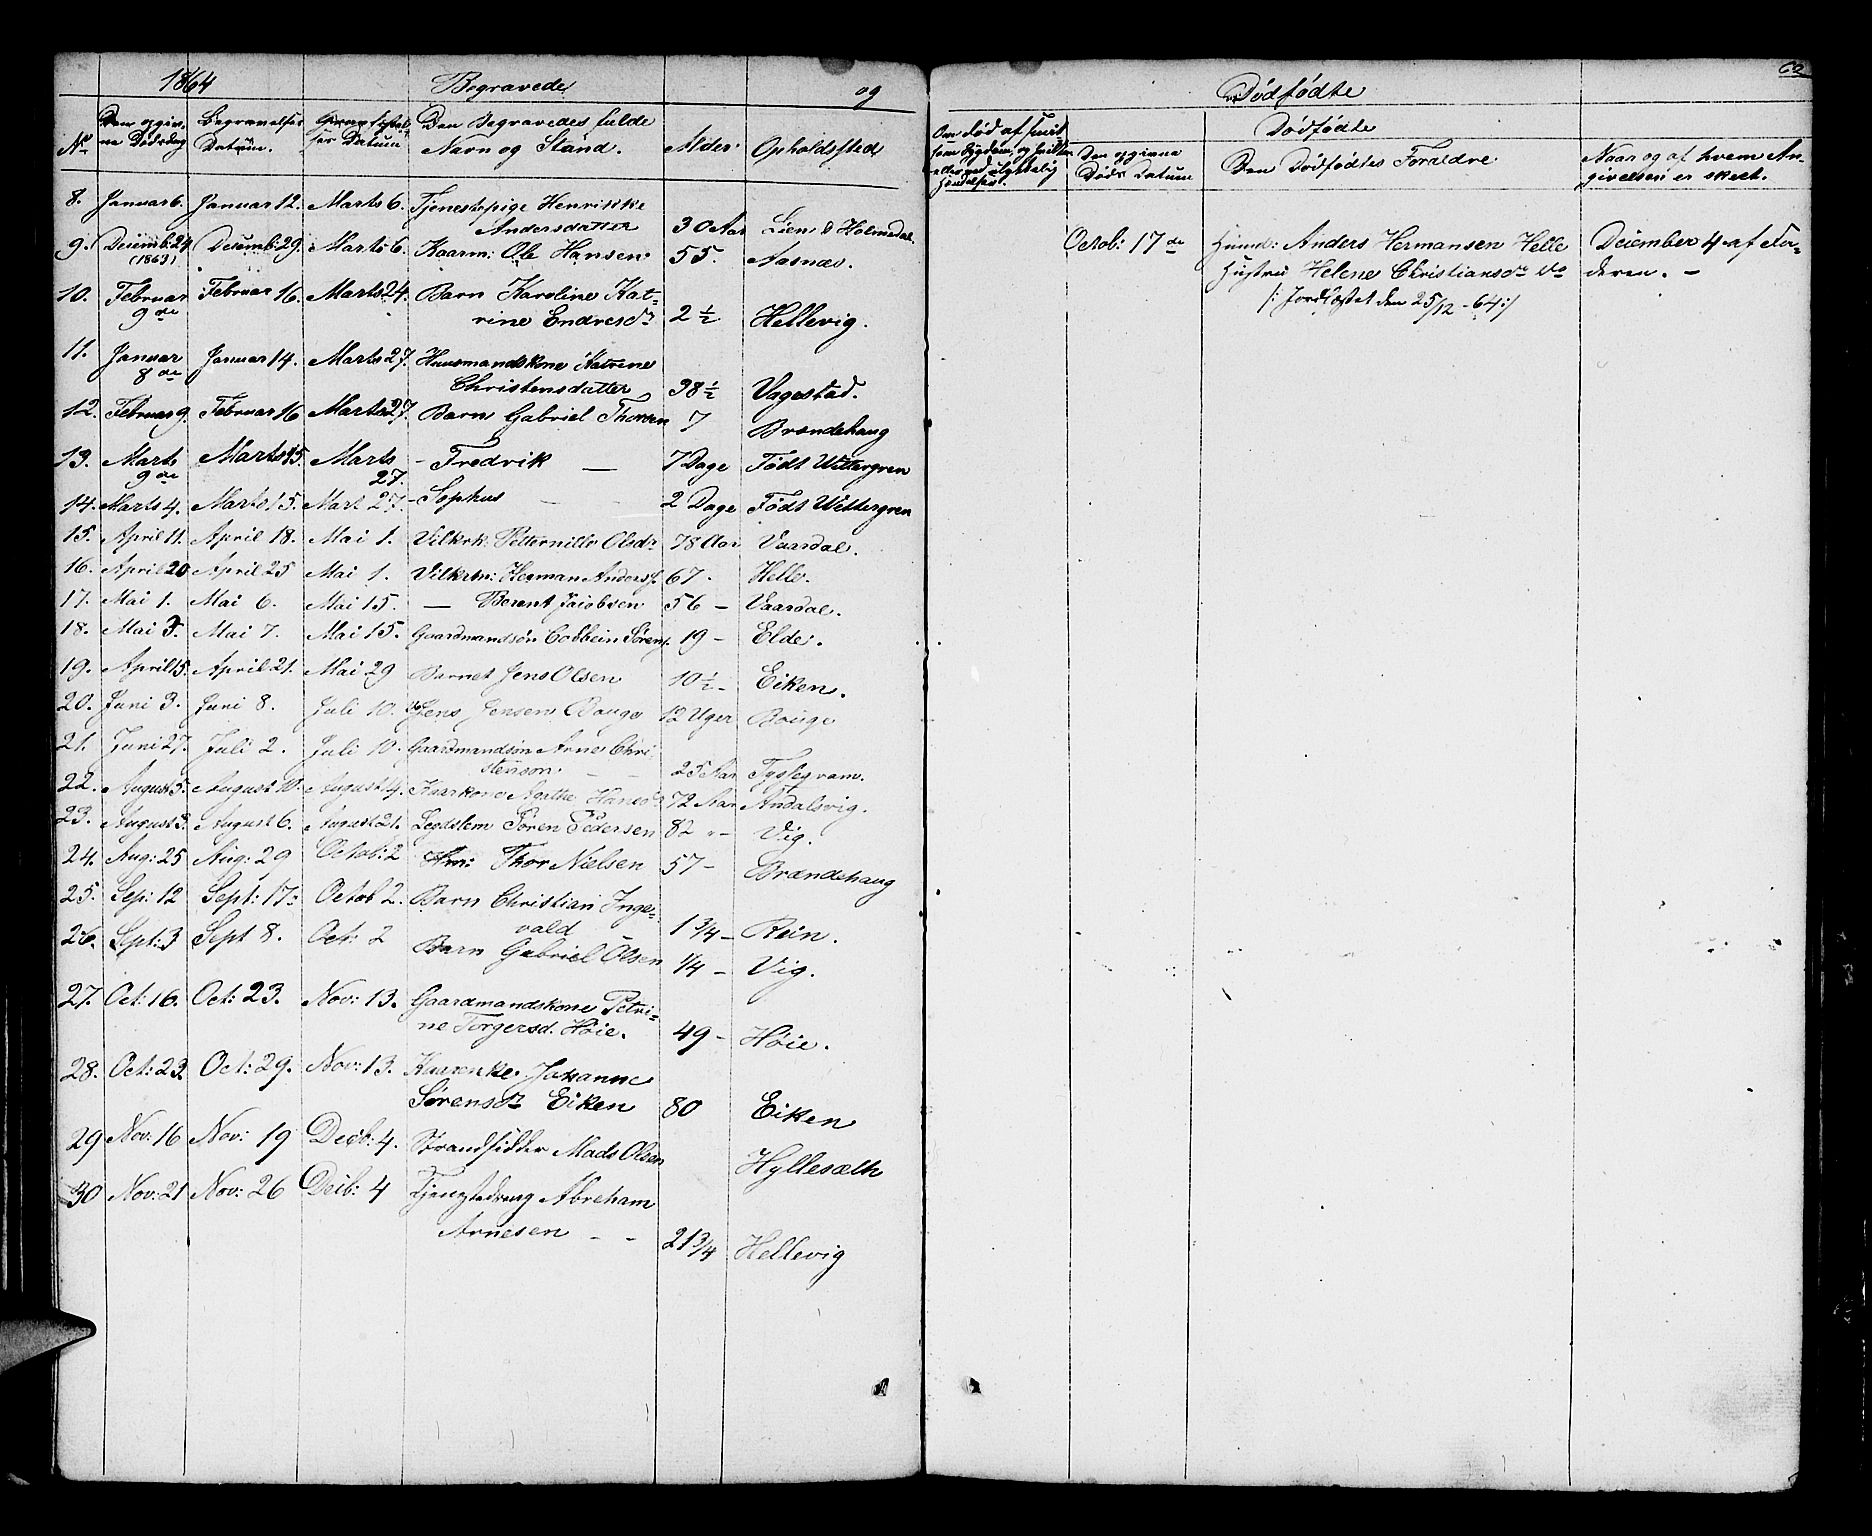 1864 Begravede og
No Den opgivne Dødsdag Begravelses Datum. Datum Den Begravedes fulde Navn og Stand. Alder Opholdsted
8. Januar 6. Januar 12. Marts 6. Tjenestepige Henrikke
Andersdatter 30 Aar Lien i Holmedal
9. Decemb: 24 (1863) Decemb: 29. Marts 6. Kaarm: Ole Hansen 55. Aasnæs.
10. Februar 9de Februar 16. Marts 24. Barn Karoline Kat-
rine Endresdr 2 1/2 Hellevig.
11. Januar 8de Januar 14. Marts 27. Huusmandskone Katrine
Christensdatter 38 1/2 Vagestad.
12. Februar 9. Februar 16 Marts 27. Barn Gabriel Thorsen 7 Brændehaug
13. Marts 9de Marts 15. Marts 27. - Fredrik — 7 Dage Født Wittergren
14. Marts 4. Marts 15. Mart 27. - Sophus — 2 Dage Født Wittergren
15. April 11. April 18. Mai 1. Vilkrk: Petternille Olsdr 78 Aar Vaardal.
16. April 20 April 25 Mai 1. Vilkrm: Herman Anders. 67. Helle.
17. Mai 1. Mai 6. Mai 15. — Berent Jacobsen 56 - Vaardal.
18. Mai 3. Mai 7. Mai 15. Gaardmandsøn Colbein Sørens. 19 - Elde.
19. April 15. April 21. Mai 29 Barnet Jens Olsen 10 1/2 - Eiken.
20. Juni 3. Juni 8. Juli 10. Jens Jensen Bauge 12 Uger Bauge
21. Juni 27. Juli 2. Juli 10. Gaardmandsøn Arne Chri-
stenson. 25 Aar
22. August 5. August 10. August 14. Kaarkone Agathe Hansdr 72 Aar Andalsvig.
23. August 3. August 6. August 21. Legdslem Søren Pedersen 82 " - Vig.
24. Aug: 25 Aug: 29 Octob: 2 Hm: Thor Nielsen 57 - Brændehaug
25. Sep: 12 Sept: 17. Octob 2. Barn Christian Inge-
vald 1 3/4 - Rein.
26. Sept: 3 Sept 8. Oct: 2 Barn Gabriel Olsen 1/4 - Vig.
27. Oct: 16. Oct: 23. Nov: 13. Gaardmandskone Petri-
ne Torgersd. Høie. 49 - Høie.
28. Oct: 23 Oct: 29. Nov: 13. Johanne
Sørensdr Eiken 80 Eiken
29 Nov: 16 Nov: 19 Decb: 4. Strandsidder Mads Olsen Hyllesæth
30 Nov: 21 Nov: 26 Decb: 4 Tjenestedreng Abreham
Arnesen - - 21 3/4 Hellevig
62
Dødfødte
Dødfødte
Om død af smit-
som Sygdom, og hvilken
eller ved ulykkelig
Hændelse.
Den opgivne
Døds Datum
Den Dødfødtes Forældre
Naar og af hvem An-
givelsen er skeet.
Octob: 17de Huusm: Anders Hermansen Helle December 4 af Fa-
Hustru Helene Christiansdr do deren. -
/: Jordfæstet den 25/12 - 64 :/